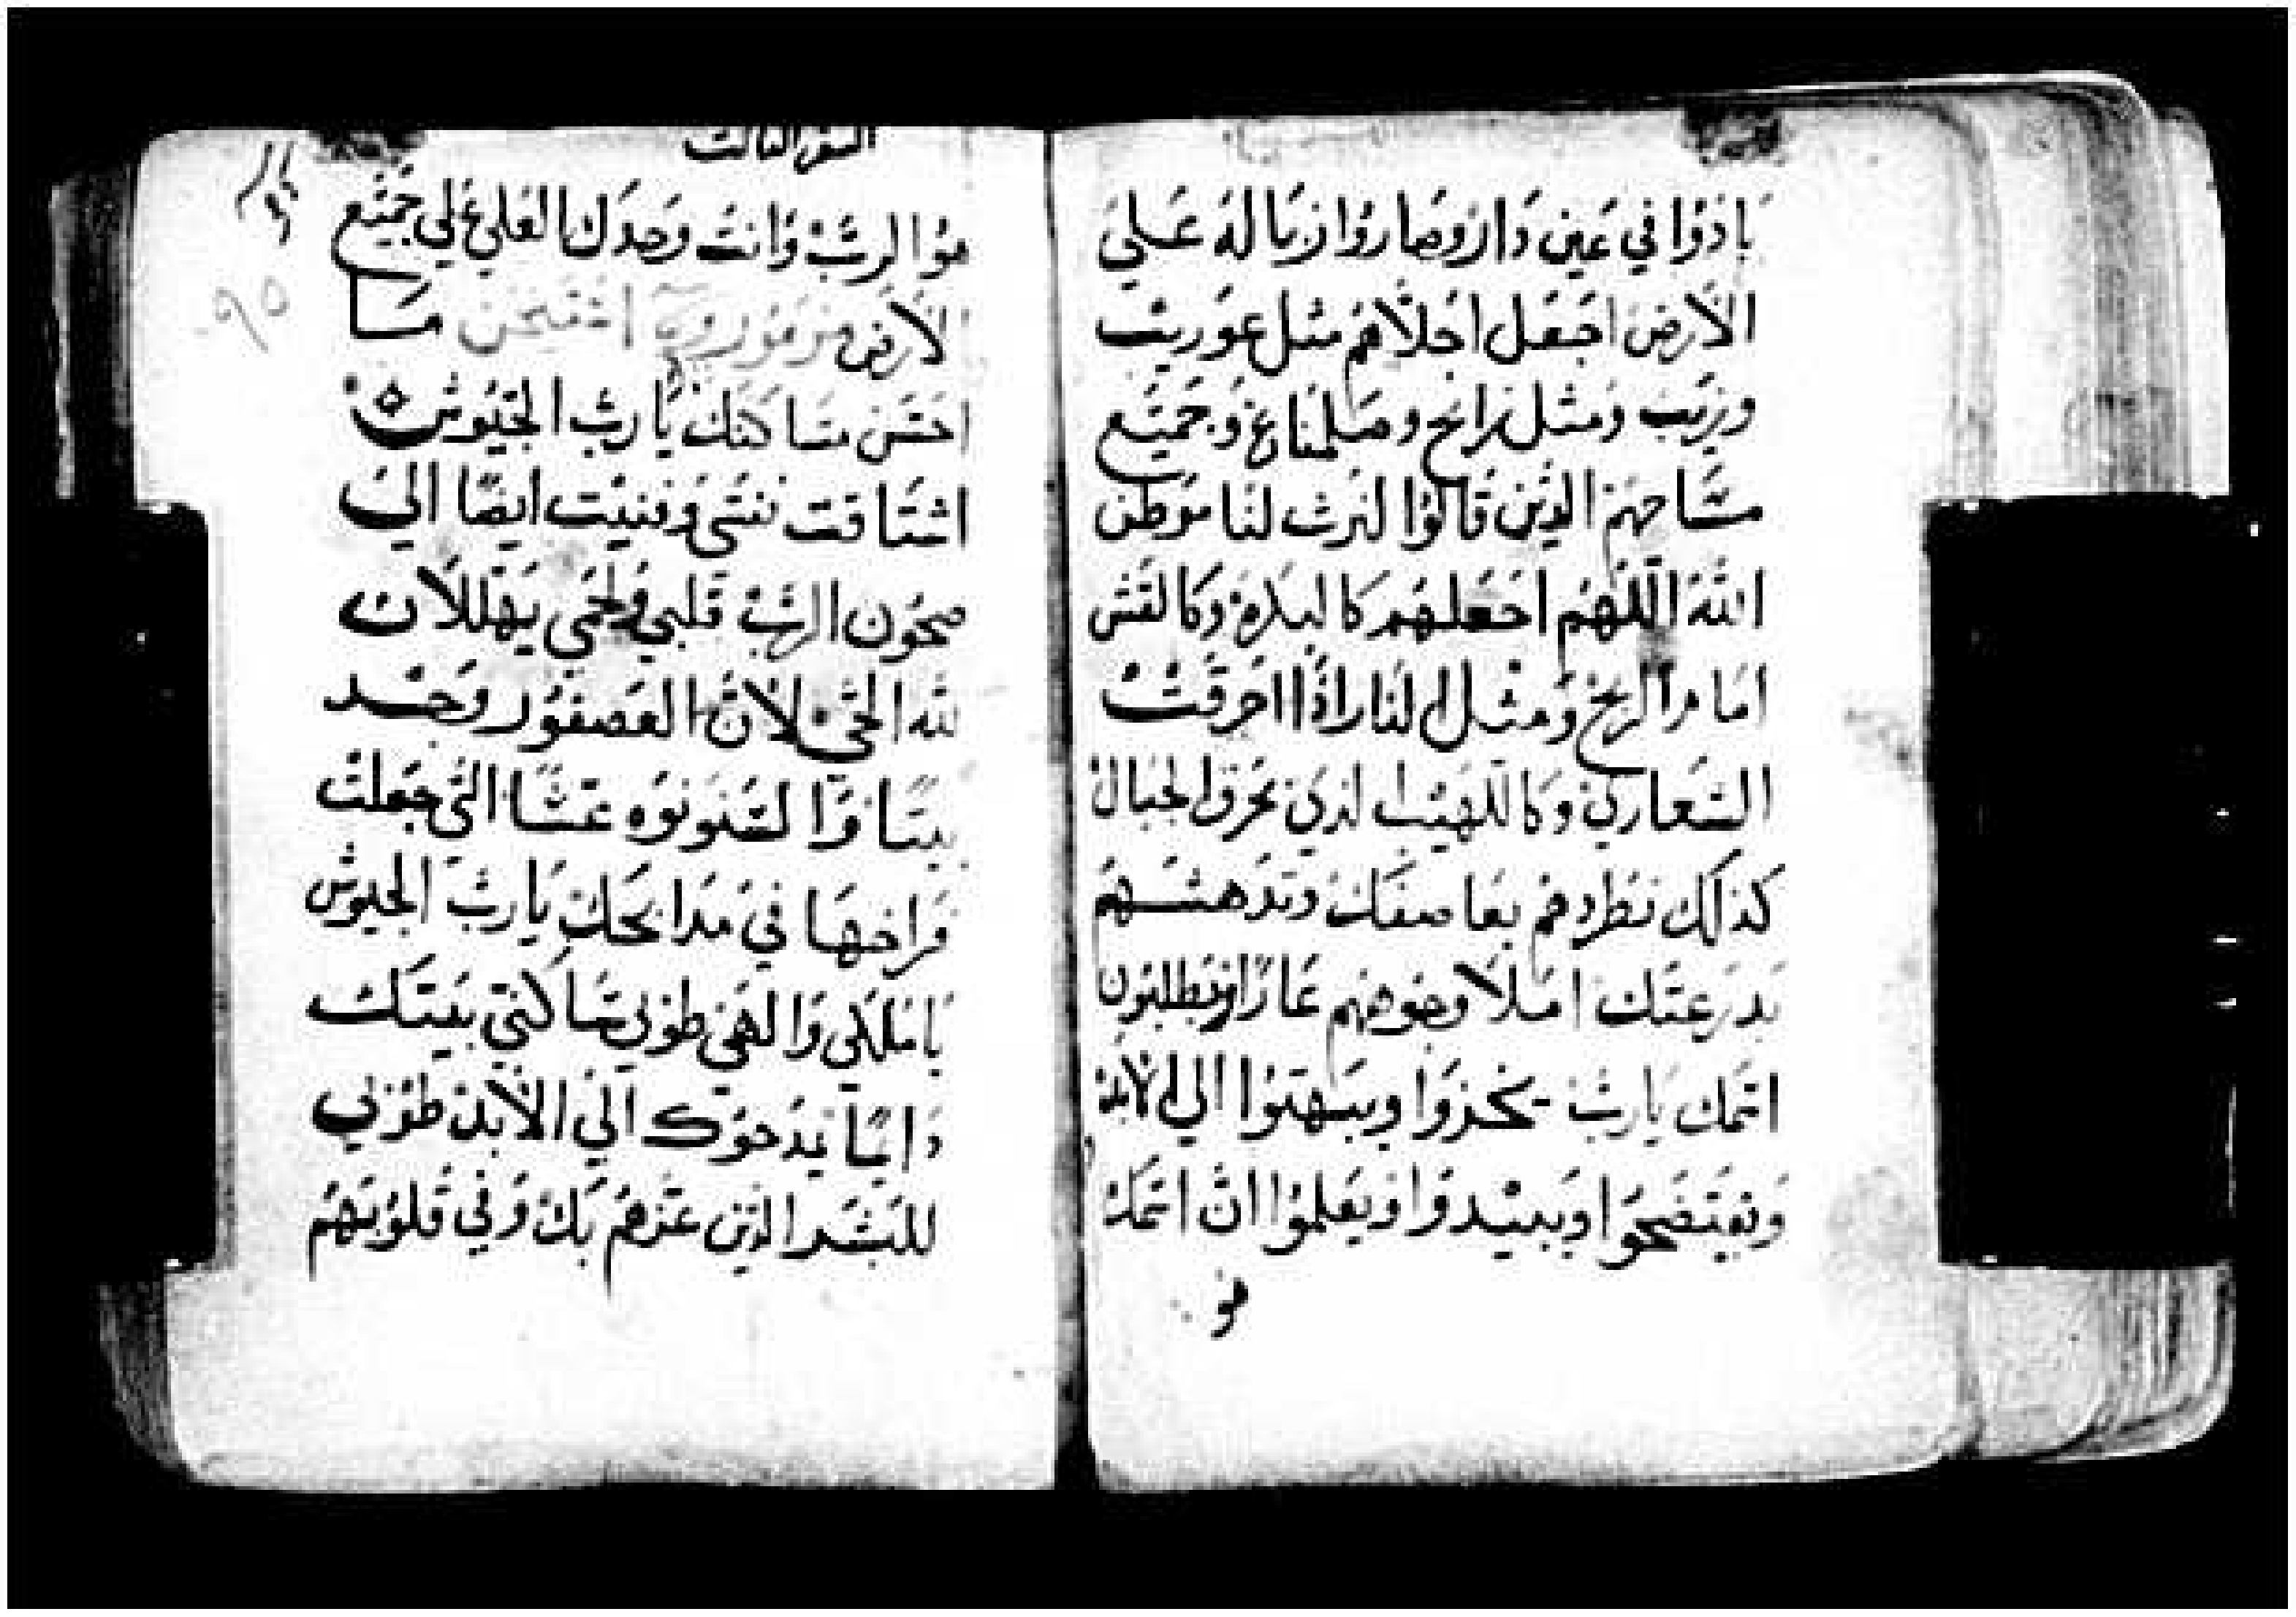 بادوا في عين دار وصاروا زباله علي
الارض اجعل اجلاهم مثل عوريب
وزيب ومثل زابح وصلمناع وجميع
مشاحهم الذين قالوا لنرث لنا موطن
الله اللهم اجعلهم كالبكرة وكالقش
امام الريح ومثل النار اذا احرقت
الشعاري وكاللهيب الذي يحرق الجبال
كذلك تطردهم بعاصفك وتدهشهم
بدرعتك املا وجوههم عارا ويطلبون
اسمك يارب يخزوا ويبهتوا الي الابد
ويفتضحوا ويبيدوا ويعلموا ان اسمك
هو
السفر الثالث
هو الرب وانت وحدك العلي علي جميع
الارض مزمور
احسن مساكنك يارب الجيوش
اشتاقت نفسي وفنيت ايضا الي
صحون الرب قلبي ولحمي يهللان
لله الحي لان العصفور وجد
بيتا والسنونوه عشا التي جعلت
فراخها في مذابحك يارب الجيوش
يا ملكي والهي طوبي لساكني بيتك
دايما يمدحوك الي الابد طوبي
للبشر الذين عزهم بك وفي قلوبهم